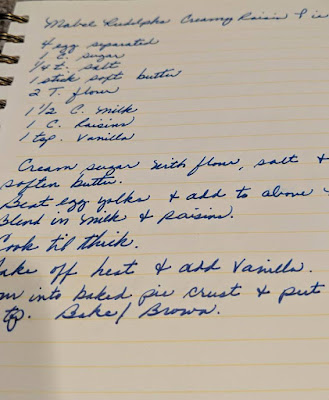 Mabel Rudolphs Creamy Raisin Pie
4 egg separated
1 C. sugar
1/4 t. salt
1 stick soft butter
2 T. flour
1 1/2 C. Milk
1 C. Raisins
1 tsp. Vanilla
Cream sugar with flour, salt &
soften butter.
Beat egg yolks & add to above
Blend in milk & raisins.
Cook til thick.
Take off heat & add Vanilla.
into baked pie crust & put
Bake/Brown.